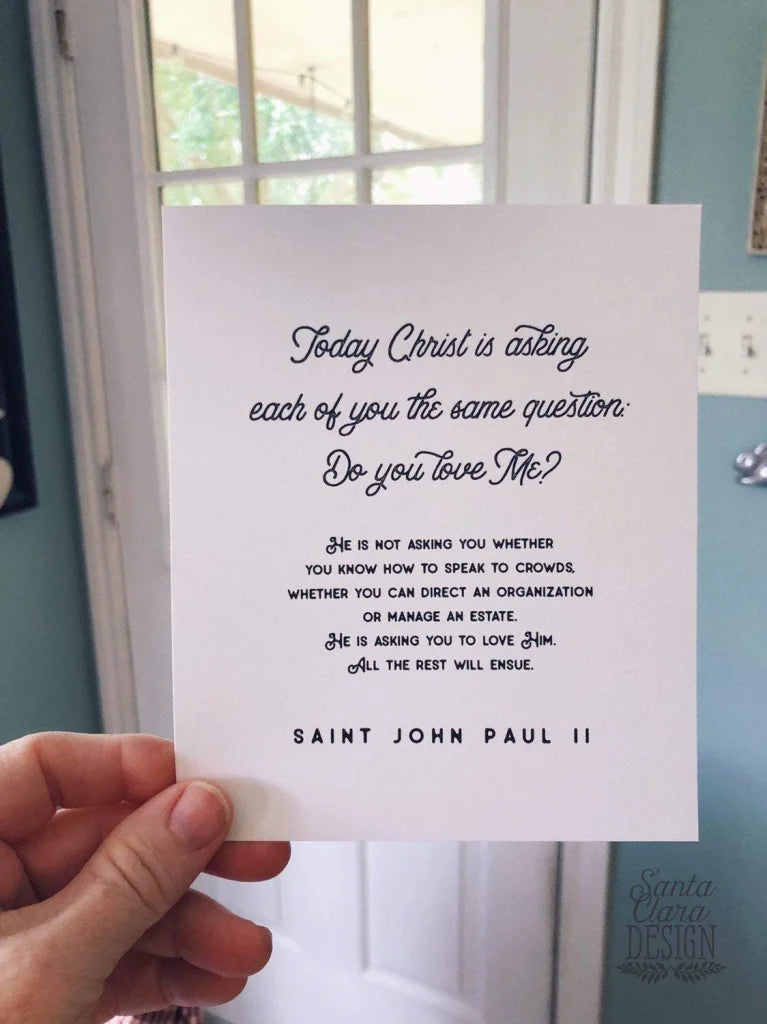 Today Christ is asking
each of you the same question:
Do you love Me?
He is not asking you whether
you know how to speak to crowds,
whether you can direct an organization
or manage an estate.
He is asking you to love Him.
All the rest will ensue.
SAINT JOHN PAUL II
Santa
Clara
DESIGN